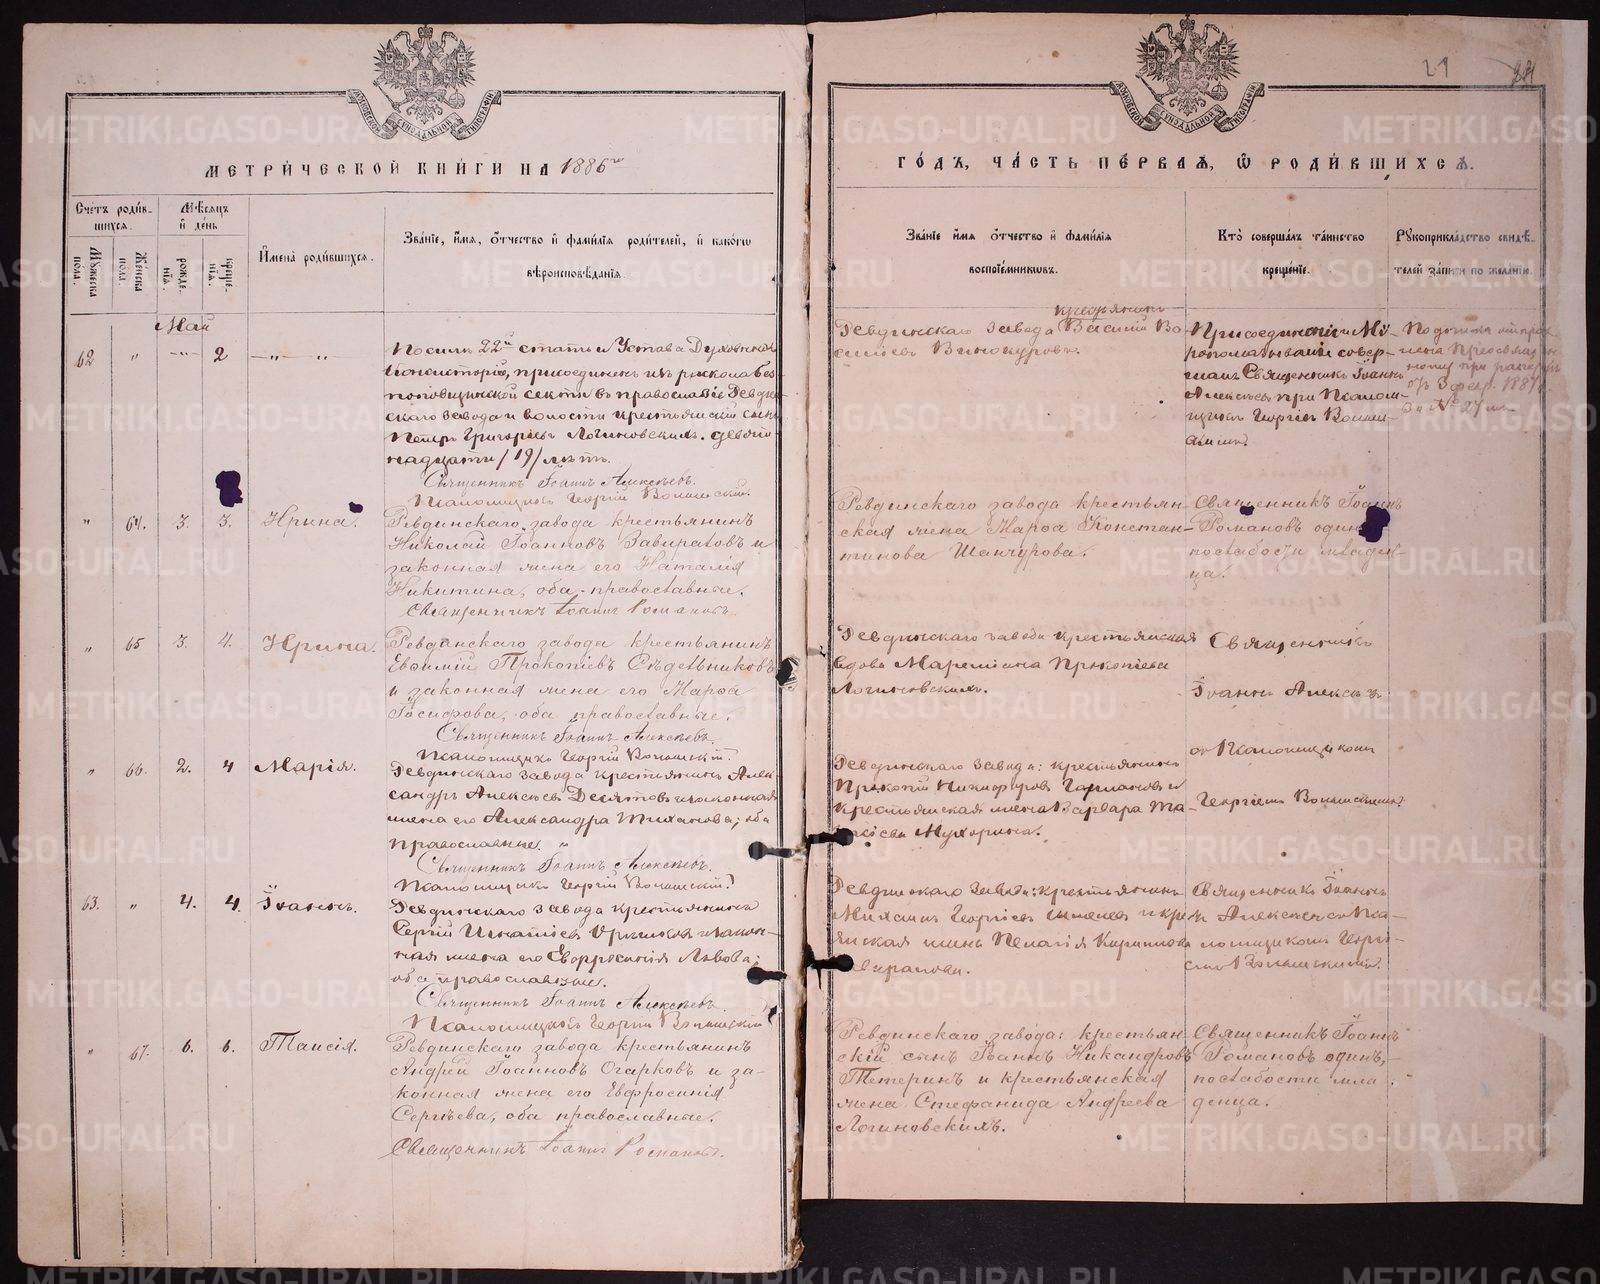 МЕТРИЧЕСКОЙ КНИГИ НА 1886й
Счетъ родившихся.
Мужеска пола.
Женска пола.
Мѣсяцъ и день
рожденія.
крещенія.
Имена родившихся.
Званіе, имя, отчество и фамилія родителей, и какого
вѣроисповѣданія.
Май
62 " —"— 2 —"— "
По силѣ 22й статьи Устава Духовныхъ
Консисторій, присоединенъ изъ раскола без-
поповщинской секты въ православіе Ревдин-
скаго завода и волости крестьянскій сынъ
Петръ Григорьевъ Логиновскихъ. девятнадцати /19/ лѣтъ.
Священникъ Іоаннъ Алексѣевъ.
Псаломщикъ Георгій
" 64. 3. 3. Ирина.
Ревдинскаго завода крестьянинъ
Николай Іоанновъ и
законная жена его Наталія
Никитина, оба православные.
Священникъ Іоаннъ Романовъ.
" 65 3. 4. Ирина.
Ревдинскаго завода крестьянинъ
Евѳимій Прокопіевъ Сѣдельниковъ
и законная жена его Марѳа
Іосифова, оба православные.
Священникъ Іоаннъ Алексѣевъ.
Псаломщикъ Георгій
" 66. 2. 4 Марія.
Ревдинскаго завода крестьянинъ Алек-
сандръ Алексѣевъ Десятовъ и законная
жена его Александра Тиханова; оба
православные.
Священникъ Іоаннъ Алексѣевъ.
Псаломщикъ Георгій
63. " 4. 4. Іоаннъ.
Ревдинскаго завода крестьянинъ
Сергій Игнатіевъ и закон-
ная жена его Евфросинія Львова;
оба православные.
Священникъ Іоаннъ Алексѣевъ.
Псаломщикъ Георгій
" 67. 6. 6. Таисія.
Ревдинскаго завода крестьянинъ
Андрей Іоанновъ Огарковъ и за-
конная жена его Евфросинія
Сергѣева, оба православные.
Священникъ Іоаннъ Романовъ.
29
ГОДЪ, ЧАСТЬ ПЕРВАЯ, Ѡ РОДИВШИХСЯ.
Званіе имя отчество и фамилія
воспоіемниковъ.
Кто совершалъ таинство
крещеніе.
Рукоприкладство свидѣ-
телей записи по желанію.
крестьянинъ
Ревдинскаго завода Василій Ва-
сильевъ Винокуровъ.
Присоединеніе и Мѵ-
ропомазываніе совер-
шалъ Священникъ Іоаннъ
Алексѣевъ при Псалом-
щикѣ Георгіѣ
Ревдинскаго завода крестьян-
ская жена Марѳа Констан-
тинова Шанчурова.
Священникъ Іоаннъ
Романовъ одинъ
по слабости младен-
ца.
Ревдинскаго завода крестьянская
вдова Мареміана Прокопіева
Логиновскихъ.
Священникъ
Іоаннъ Алексѣевъ
съ Псаломщикомъ
Георгіемъ
Ревдинскаго завода: крестьянинъ
Прокопій Никифоровъ и
крестьянская жена Варвара
Мухорина.
Ревдинскаго завода: крестьянинъ
Михаилъ Георгіевъ и кресть-
янская жена Пелагія Кириллова
Священникъ Іоаннъ
Алексѣевъ съ Пса-
ломщикомъ Георгі-
емъ
Ревдинскаго завода: крестьян-
скій сынъ Іоаннъ Никандровъ
Тетеринъ и крестьянская
жена Стефанида Андреева
Логиновскихъ.
Священникъ Іоаннъ
Романовъ одинъ,
по слабости мла-
денца.
METRIKI.GASO-URAL.RU